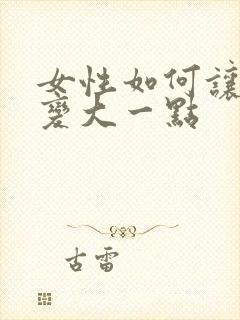 女性如何讓
變大一點
古雷